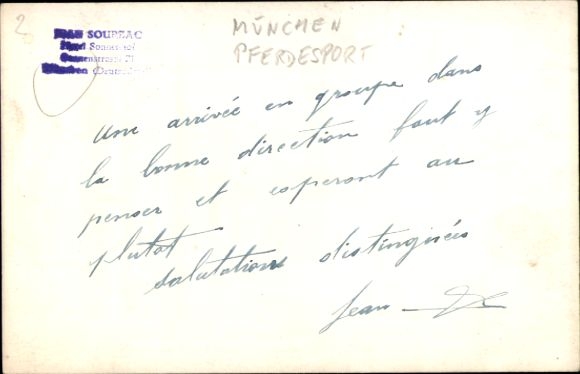 2
JEAN SOURZAC
München (Deutschland)
MÜNCHEN
PFERDESPORT
Une arrivée en groupe dans
la bonne direction faut y
penser et esperont au
plutot
salutations distinguées
Jean